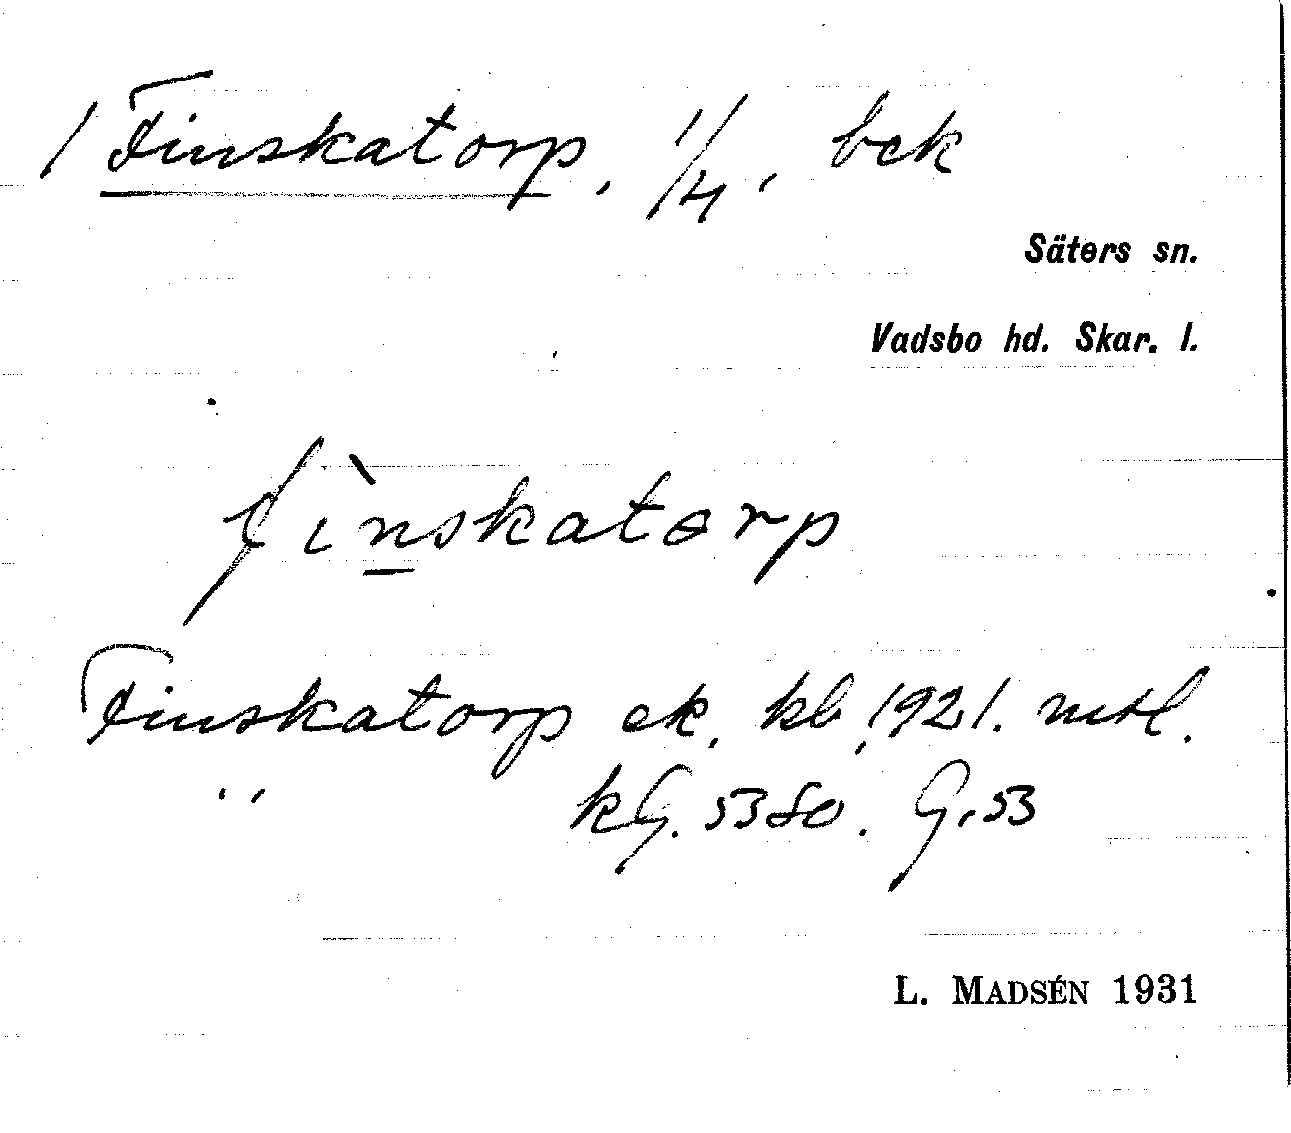 1 Finskatorp, 1/4, bek
Säters sn.
Vadsbo hd. Skar. l.
fìnskatorp
Finskatorp ek, kb, 1921. mtl.
" kG. 5380. G, 53
L. MADSÉN 1931